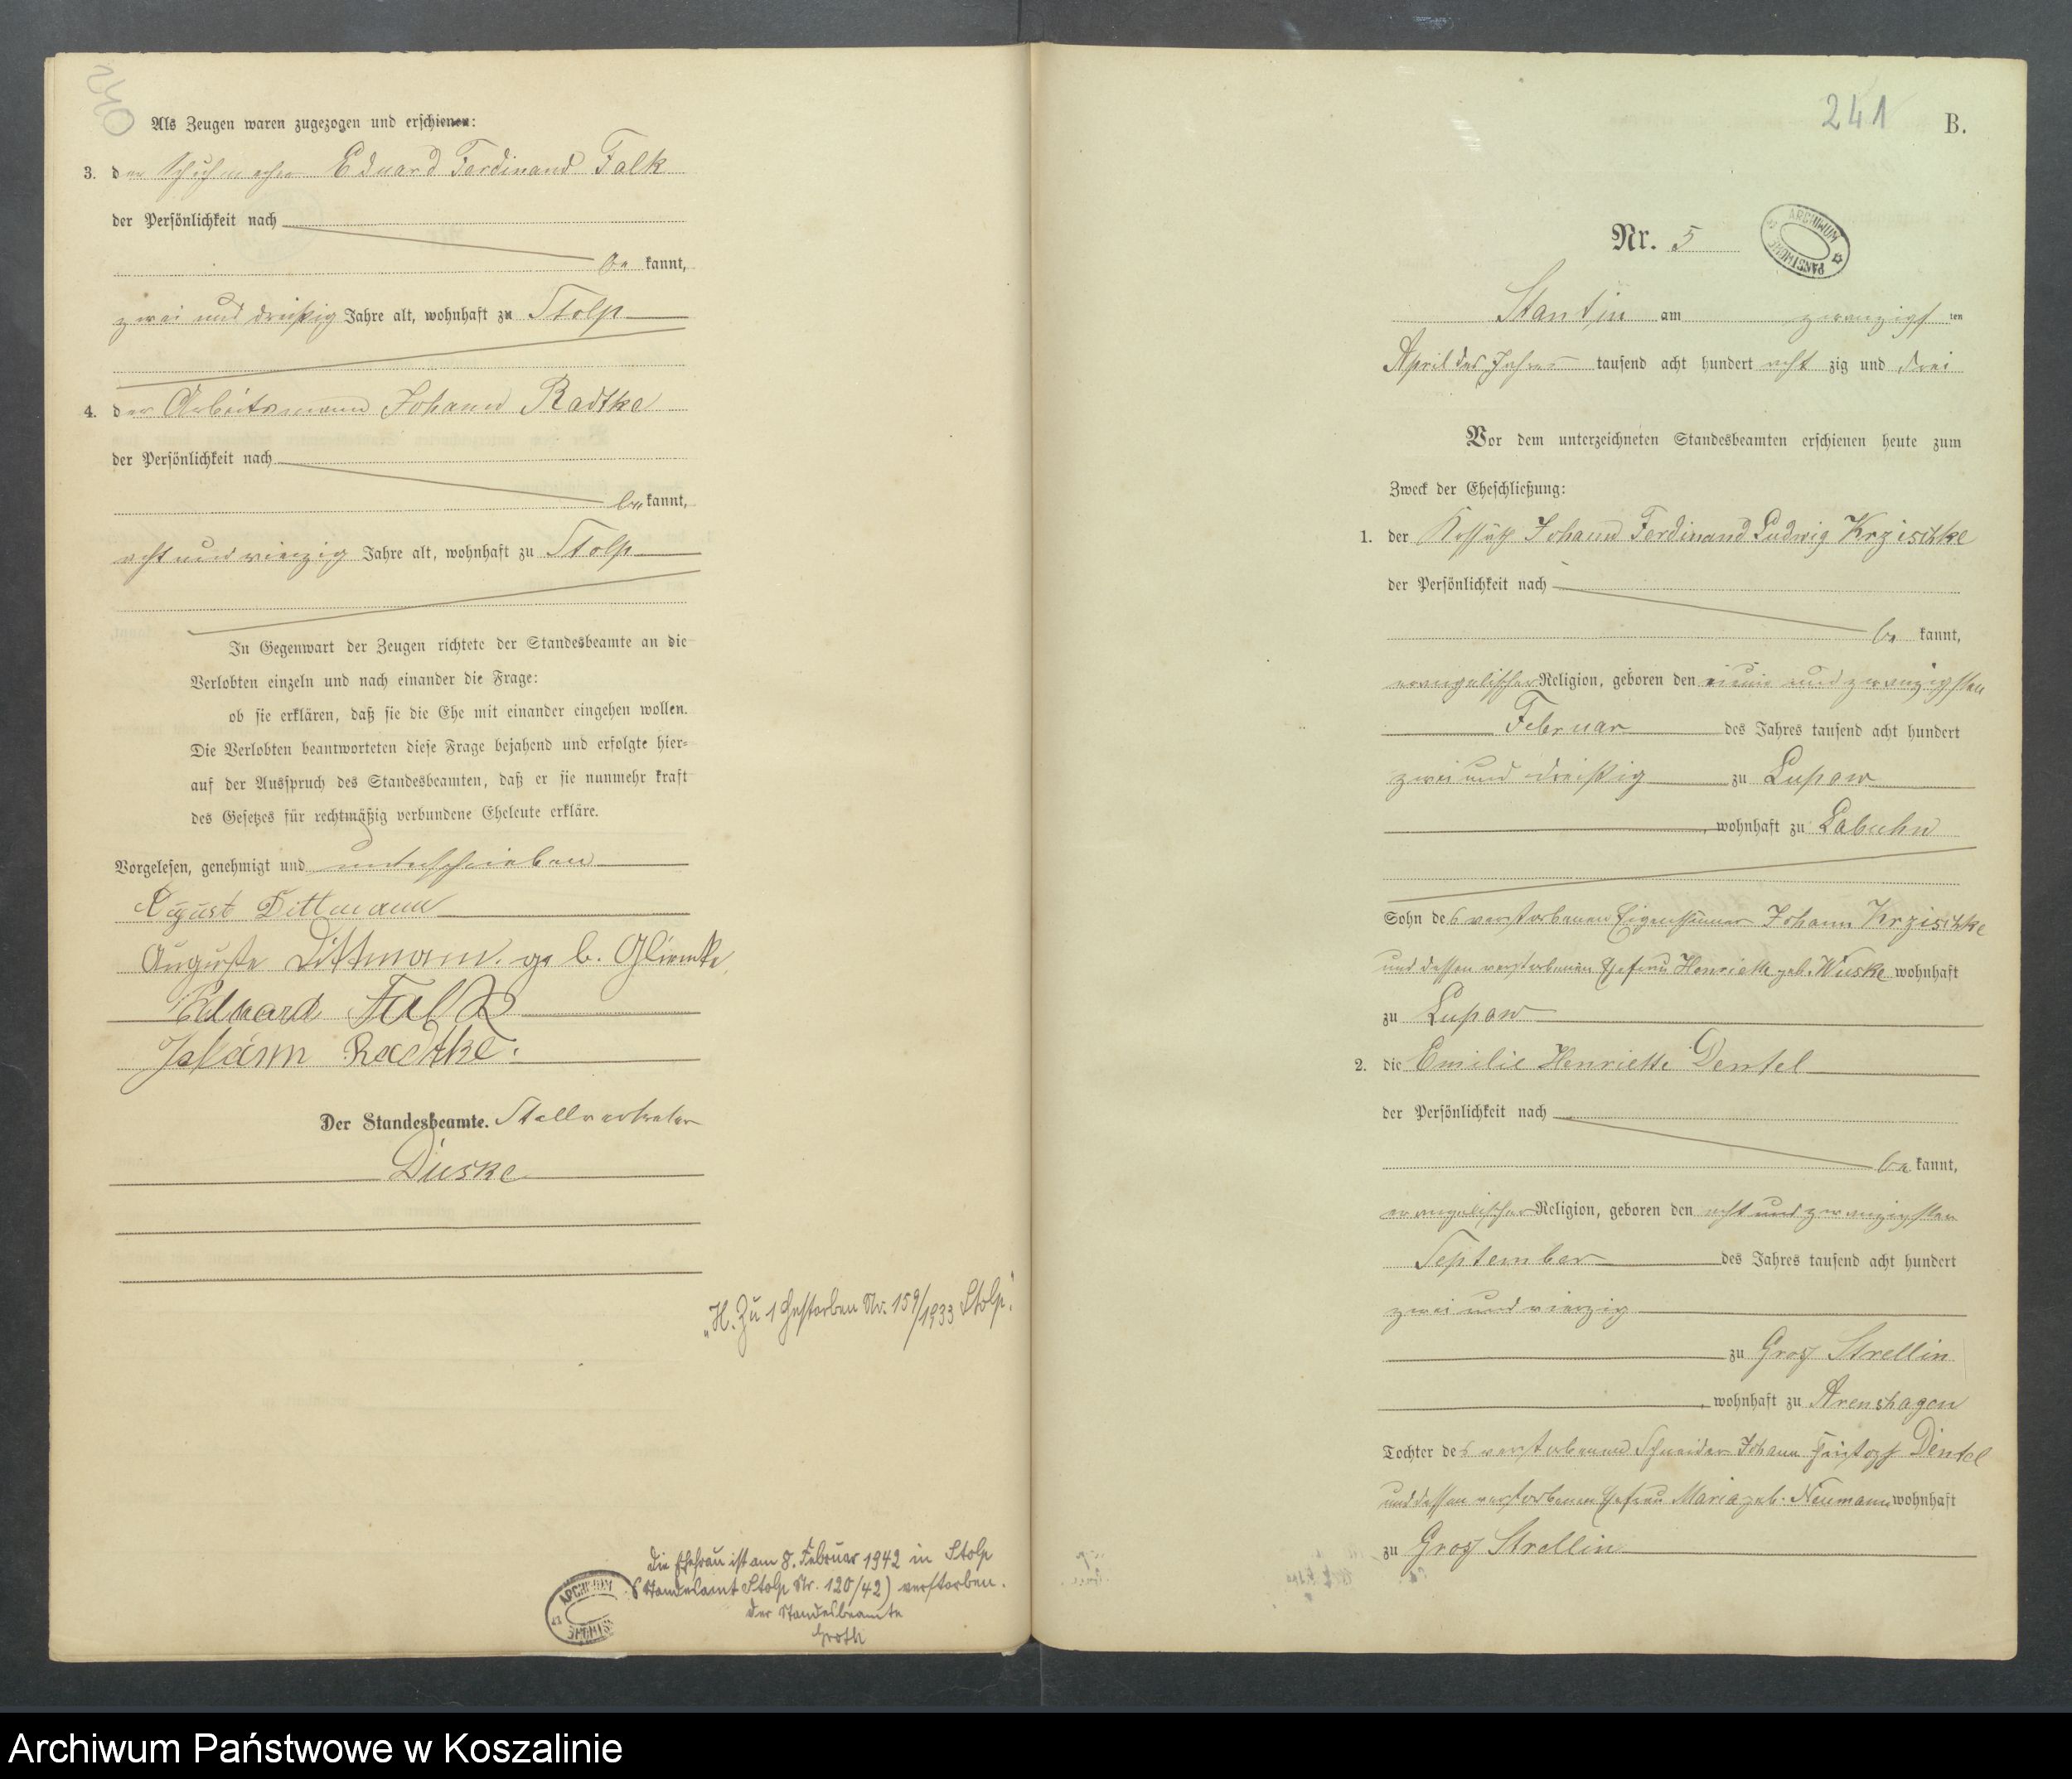 240
Als Zeugen waren zugezogen und erschienen:
3. der Schuhmacher Eduard Ferdinand Falk
der Persönlichkeit nach
be kannt,
zwei und dreißig Jahre alt, wohnhaft zu Stolp
4. der Arbeitsmann Johann Radtke
der Persönlichkeit nach
be kannt,
acht und vierzig Jahre alt, wohnhaft zu Stolp
In Gegenwart der Zeugen richtete der Standesbeamte an die
Verlobten einzeln und nach einander die Frage:
ob sie erklären, daß sie die Ehe mit einander eingehen wollen.
Die Verlobten beantworteten diese Frage bejahend und erfolgte hier-
auf der Ausspruch des Standesbeamten, daß er sie nunmehr kraft
des Gesetzes für rechtmäßig verbundene Eheleute erkläre.
Vorgelesen, genehmigt und unterschrieben
August Dittmann
Auguste Dittmann. geb. Gliemke
Eduard Falk
Johann Radtke.
Der Standesbeamte. Stellvertreter
Duske
„H. Zu 1 Gestorben Nr. 159/1933 Stolp."
Die Ehefrau ist am 8. Februar 1942 in Stolp
(Standesamt Stolp Nr. 120/42) verstorben.
Der Standesbeamte
Groth
ARCHIWUM
241
B.
Nr. 5
ARCHIWUM PAŃSTWOWE
Stantin am zwanzigsten
April des Jahres tausend acht hundert acht zig und drei
Vor dem unterzeichneten Standesbeamten erschienen heute zum
Zweck der Eheschließung:
1. der Kossäth Johann Ferdinand Ludwig Krzischke
der Persönlichkeit nach
be kannt,
evangelischer Religion, geboren den neun und zwanzigsten
Februar des Jahres tausend acht hundert
zwei und dreißig zu Lupow
, wohnhaft zu Labuhn
Sohn des verstorbenen Eigenthümer Johann Krzischke
und dessen verstorbenen Ehefrau Henriette geb. Wuske wohnhaft
zu Lupow
2. die Emilie Henriette Dentel
der Persönlichkeit nach
be kannt,
evangelischer Religion, geboren den acht und zwanzigsten
September des Jahres tausend acht hundert
zwei und vierzig
zu Groß Strellin
, wohnhaft zu Arenshagen
Tochter des verstorbenen Schneider Johann Dentel
und dessen verstorbenen Ehefrau Maria geb. Neumann wohnhaft
zu Groß Strellin
Archiwum Państwowe w Koszalinie